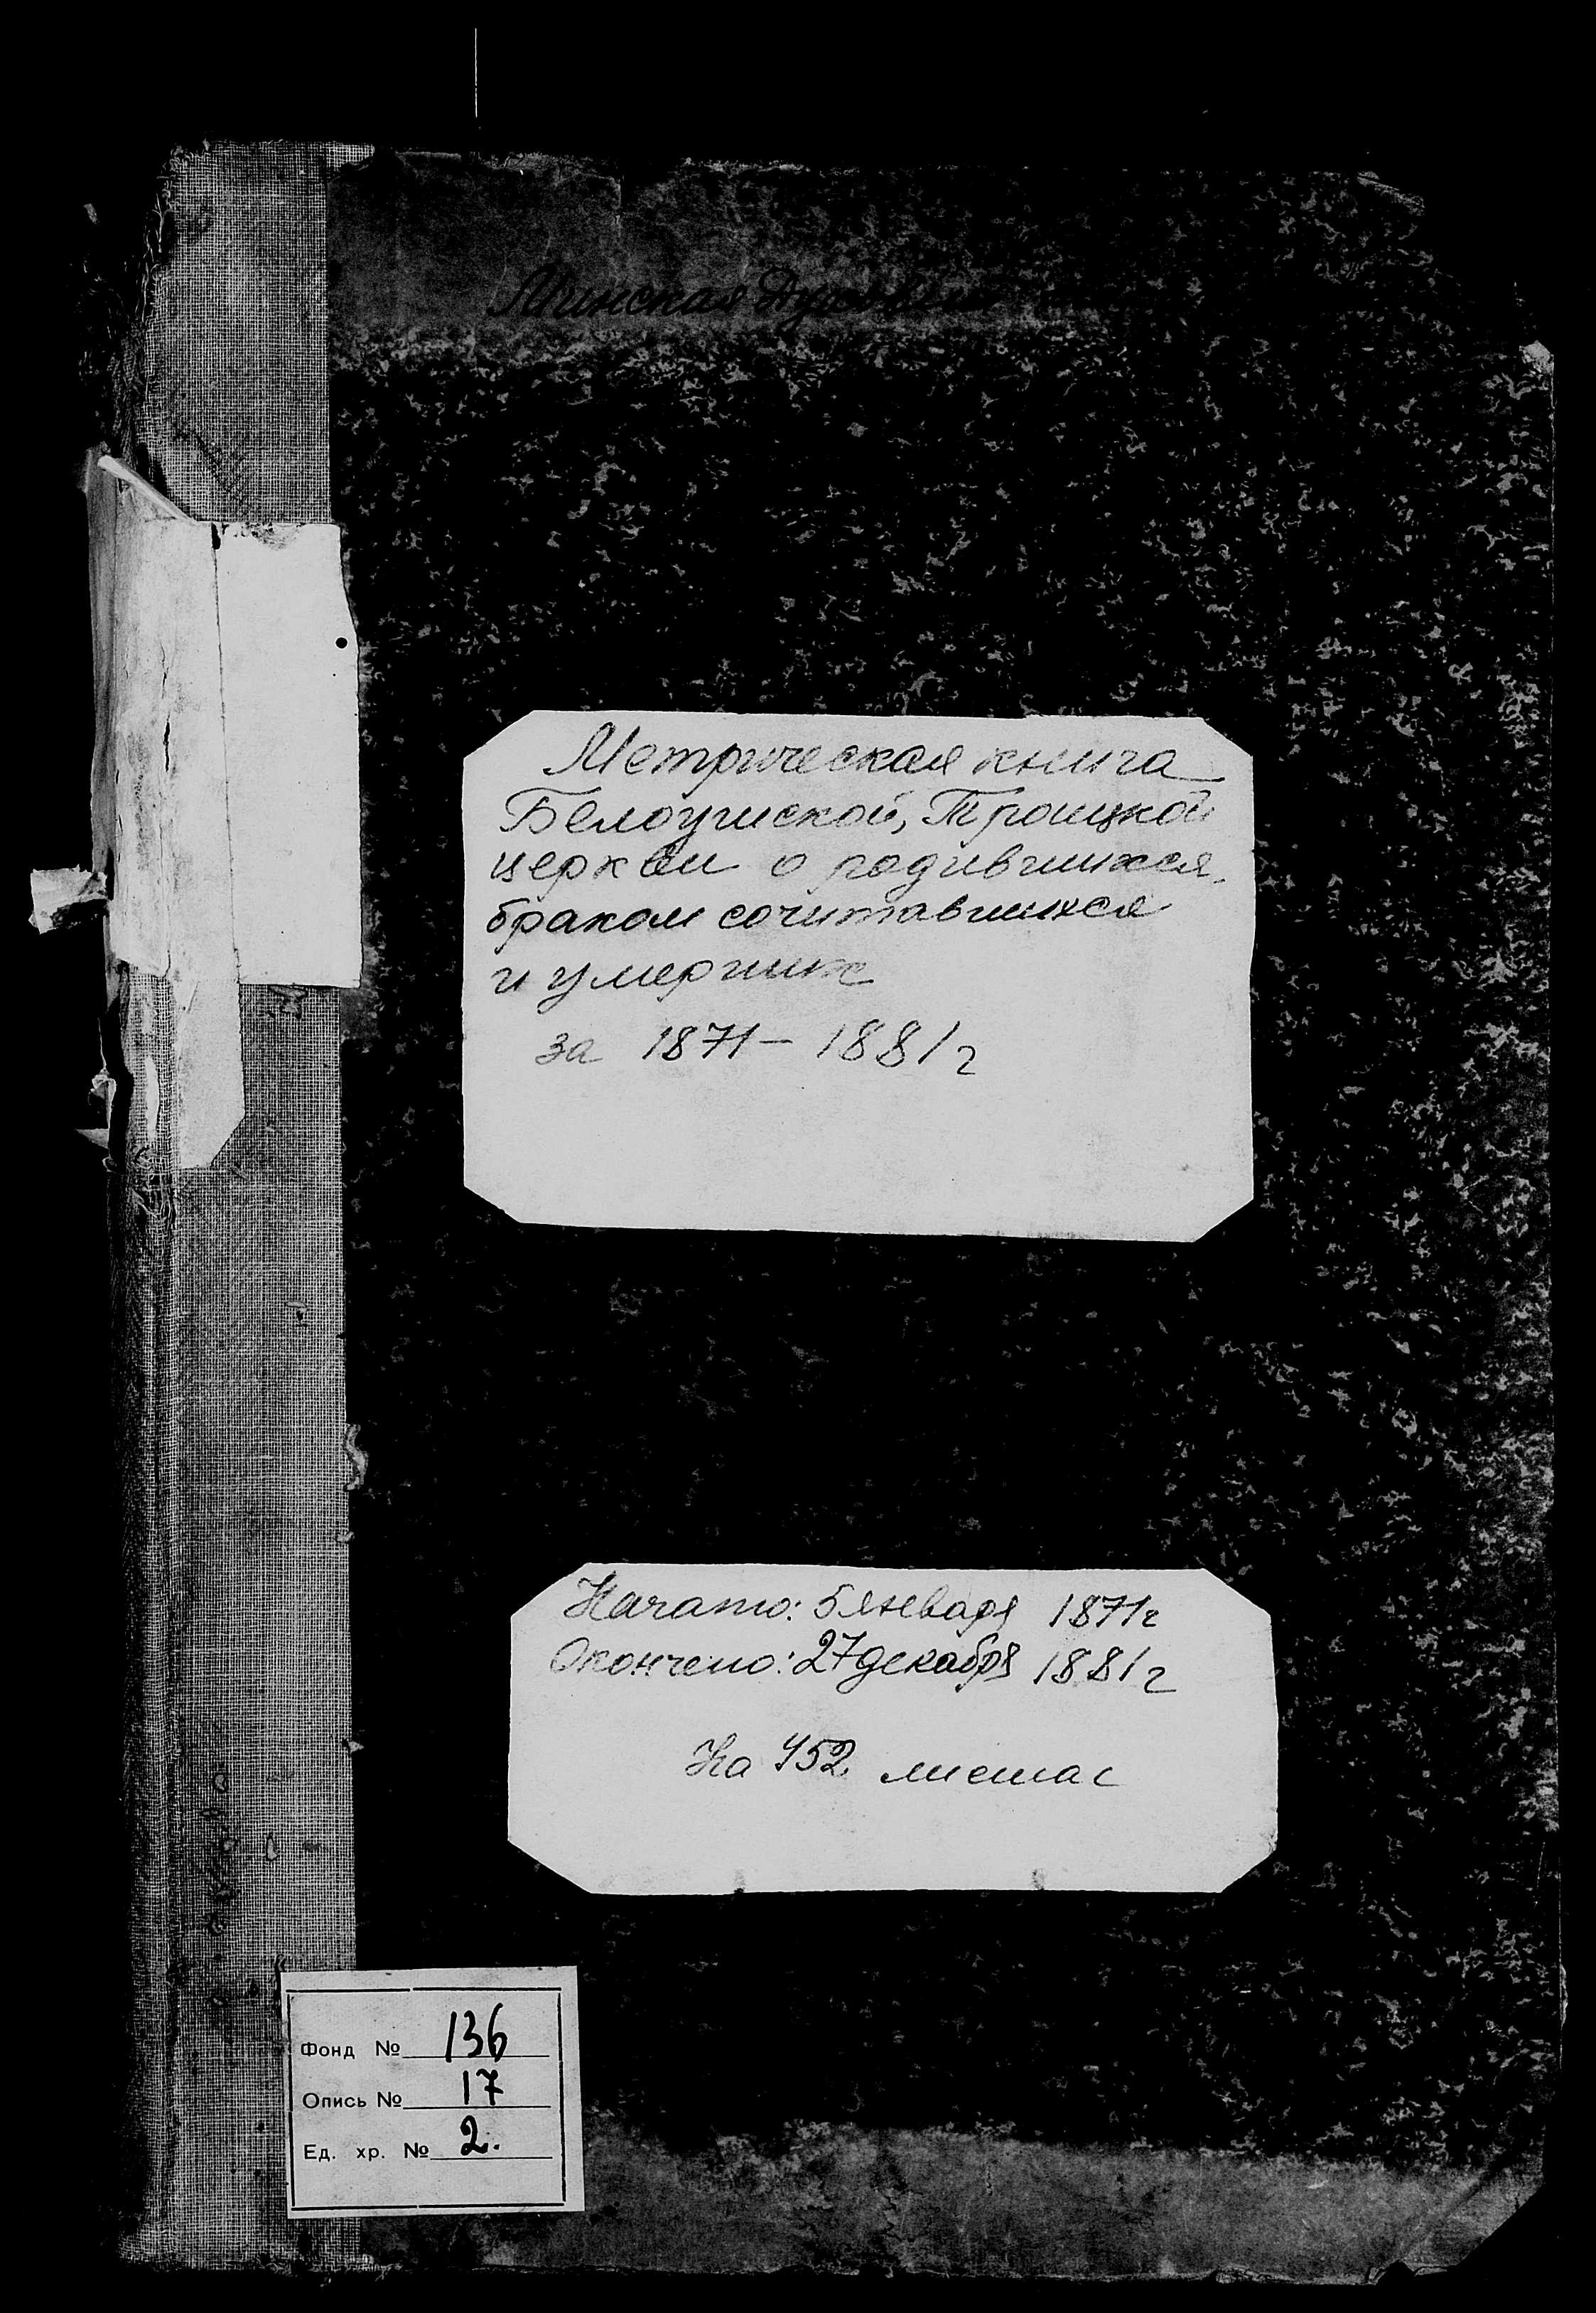 Минская Духовная
Метрическая книга
Белоушской, Троицкой
церкви о родившихся,
браком сочитавшихся
и умерших
за 1871 - 1881 г
Начато: 5 января 1871 г
Окончено: 27 декабря 1881 г
На 452 листах
Фонд № 136
Опись № 17
Ед. хр. № 2.